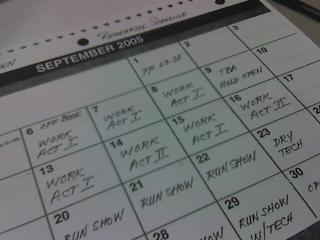 Rehearsal Schedule
SEPTEMBER 2005
1
pp. 29-38
2
3
6
OFF BOOK
WORK
ACT I
7
WORK
ACT I
8
WORK
ACT I
9
TBA
HOLD OPEN
10
13
WORK
ACT I
14
WORK
ACT II
15
WORK
ACT I
16
WORK
ACT II
17
20
RUN SHOW
21
RUN SHOW
22
RUN SHOW
23
DRY
TECH
29
RUN SHOW
W/TECH
30